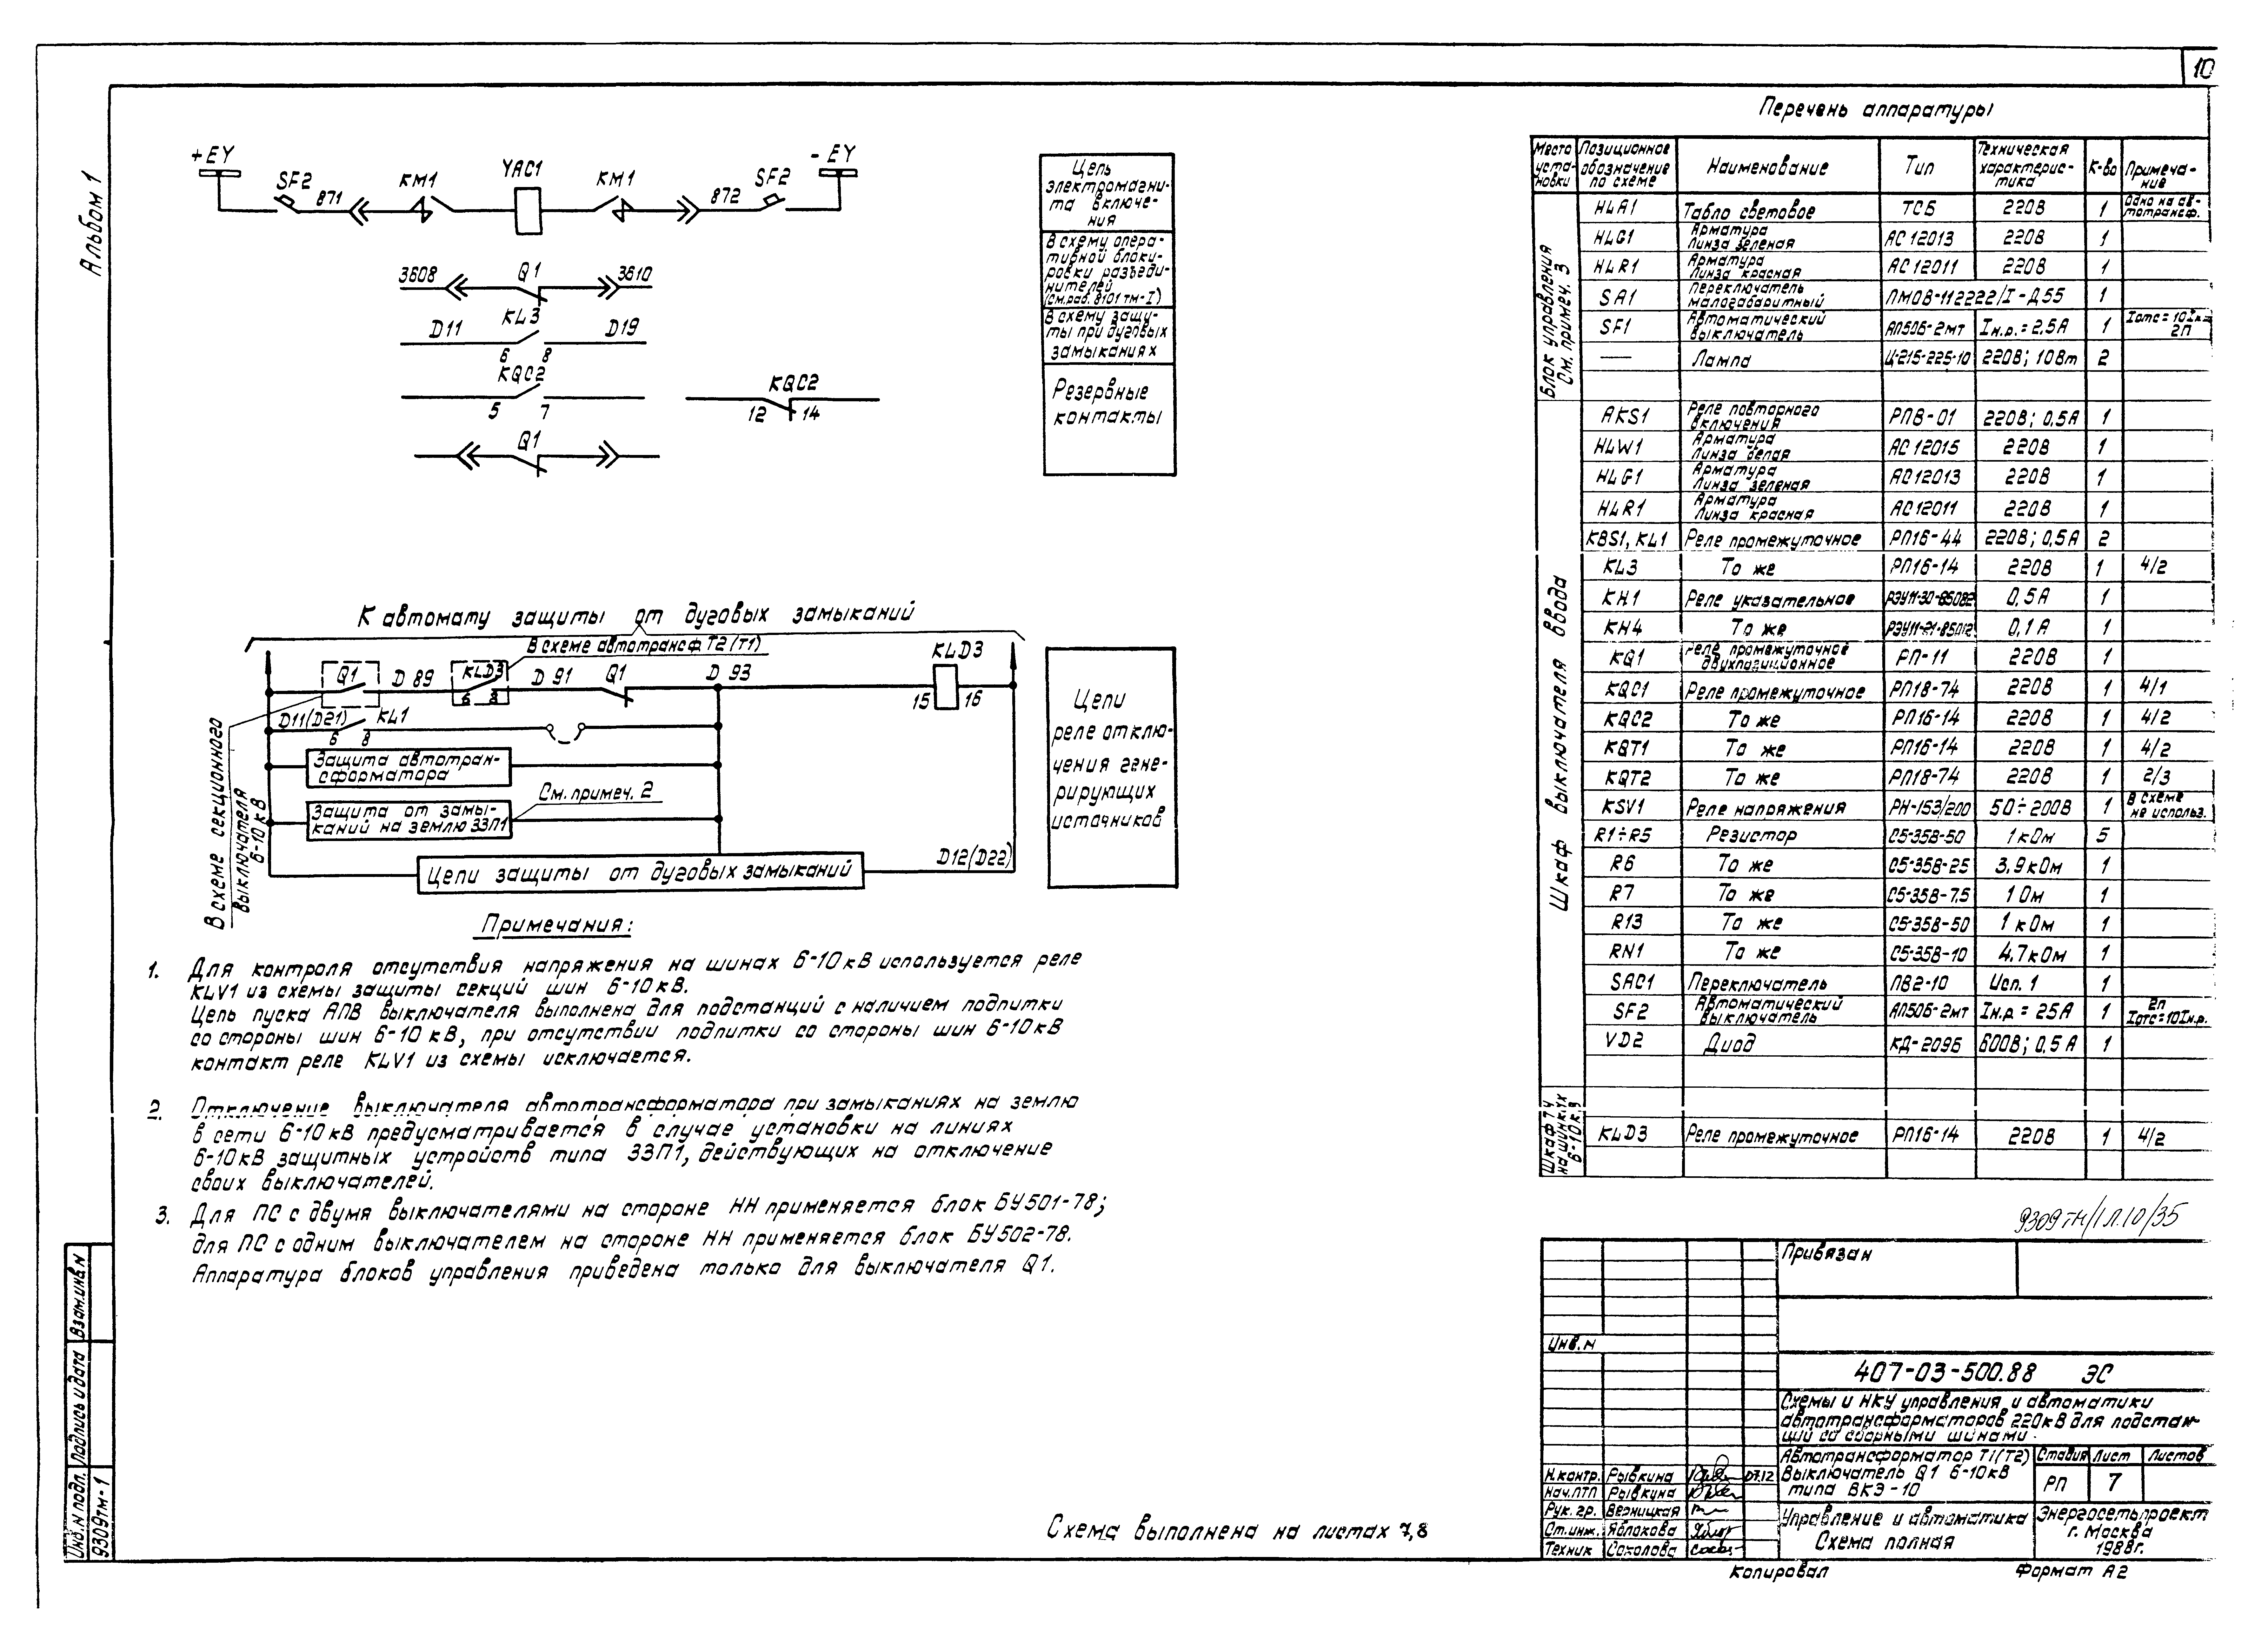 10
Альбом 1
+EY
SF2
871
KM1
YAC1
KM1
872
SF2
- EY
3608
Q1
3610
KL3
D11
D19
6 8
KQC2
5 7
KQC2
12 14
Q1
Цепь
электромагни-
та включе-
ния
В схему опера-
тивной блоки-
ровки разъеди-
нителей
(см.раб. 8101 тм-I)
В схему защи-
ты при дуговых
замыканиях
Резервные
контакты
К автомату защиты от дуговых замыканий
В схеме автотрансф. Т2 (Т1)
Q1
D 89
KLD3
6 8
D 91
Q1
D 93
KLD3
15 16
D11(D21)
KL1
6 8
Защита автотран-
сформатора
См. примеч. 2
Защита от замы-
каний на землю ЗЗП1
Цепи защиты от дуговых замыканий
D12(D22)
В схеме секционного
выключателя
6-10 кВ
Цепи
реле отклю-
чения гене-
рирующих
источников
Примечания:
1. Для контроля отсутствия напряжения на шинах 6-10 кВ используется реле
KLV1 из схемы защиты секций шин 6-10 кВ.
Цепь пуска АПВ выключателя выполнена для подстанций с наличием подпитки
со стороны шин 6-10 кВ, при отсутствии подпитки со стороны шин 6-10 кВ
контакт реле KLV1 из схемы исключается.
2. Отключение выключателя автотрансформатора при замыканиях на землю
в сети 6-10 кВ предусматривается в случае установки на линиях
6-10 кВ защитных устройств типа ЗЗП1, действующих на отключение
своих выключателей.
3. Для ПС с двумя выключателями на стороне НН применяется блок БУ501-78;
для ПС с одним выключателем на стороне НН применяется блок БУ502-78.
Аппаратура блоков управления приведена только для выключателя Q1.
Схема выполнена на листах 7,8
Перечень аппаратуры
Место уста-новки Позиционное обозначение по схеме Наименование Тип Техническая характерис-тика К-во Примеча-ние
Блок управления См. примеч. 3
HLA1 Табло световое ТСБ 220В 1 Одно на ав-тотрансф.
HLG1 Арматура Линза зеленая АС 12013 220В 1
HLR1 Арматура Линза красная АС 12011 220В 1
SA1 Переключатель малогабаритный ПМОВ-112222/I-Д55 1
SF1 Автоматический выключатель АП50Б-2МТ Iн.р. = 2,5А 1
— Лампа Ц-215-225-10 220В; 10Вт 2
Шкаф выключателя ввода
AKS1 Реле повторного включения РПВ-01 220В; 0,5А 1
HLW1 Арматура Линза белая АС 12015 220В 1
HLG1 Арматура Линза зеленая АС12013 220В 1
HLR1 Арматура Линза красная АС12011 220В 1
KBS1, KL1 Реле промежуточное РП16-44 220В; 0,5А 2
KL3 То же РП16-14 220В 1 4/2
KH1 Реле указательное РЭУ11-30-85082 0,5А 1
KH4 То же РЭУ11-21-85012 0,1А 1
KQ1 Реле промежуточное двухпозиционное РП-11 220В 1
KQC1 Реле промежуточное РП18-74 220В 1 4/1
KQC2 То же РП16-14 220В 1 4/2
KQT1 То же РП16-14 220В 1 4/2
KQT2 То же РП18-74 220В 1 2/3
KSV1 Реле напряжения РН-153/200 50÷200В 1 В схеме не использ.
R1÷R5 Резистор С5-35В-50 1 кОм 5
R6 То же С5-35В-25 3,9 кОм 1
R7 То же С5-35В-7,5 1 Ом 1
R13 То же С5-35В-50 1 кОм 1
RN1 То же С5-35В-10 4,7 кОм 1
SAC1 Переключатель ПВ2-10 Исп. 1 1
SF2 Автоматический выключатель АП50Б-2МТ Iн.р = 25А 1 2п Iотс=10Iн.р.
VD2 Диод КД-209Б 600В; 0,5 А 1
KLD3 Реле промежуточное РП16-14 220В 1 4/2
9309тм/1 Л.10/35
Привязан
Инв.N
407-03-500.88 ЭС
Схемы и НКУ управления и автоматики
автотрансформаторов 220кВ для подстан-
ций со сборными шинами.
Автотрансформатор Т1(Т2)
Выключатель Q1 6-10кВ
типа ВКЭ-10
Стадия Лист Листов
РП 7
Управление и автоматика
Схема полная
Энергосетьпроект
г. Москва
1988г.
Н.контр. Рывкина 07.12
Нач.ПТП Рывкина
Рук. гр. Верницкая
Ст.инж. Яблокова
Техник Соколова
Копировал
Формат А2
Инв.N подл. Подпись и дата Взам.инв.N
9309тм-1